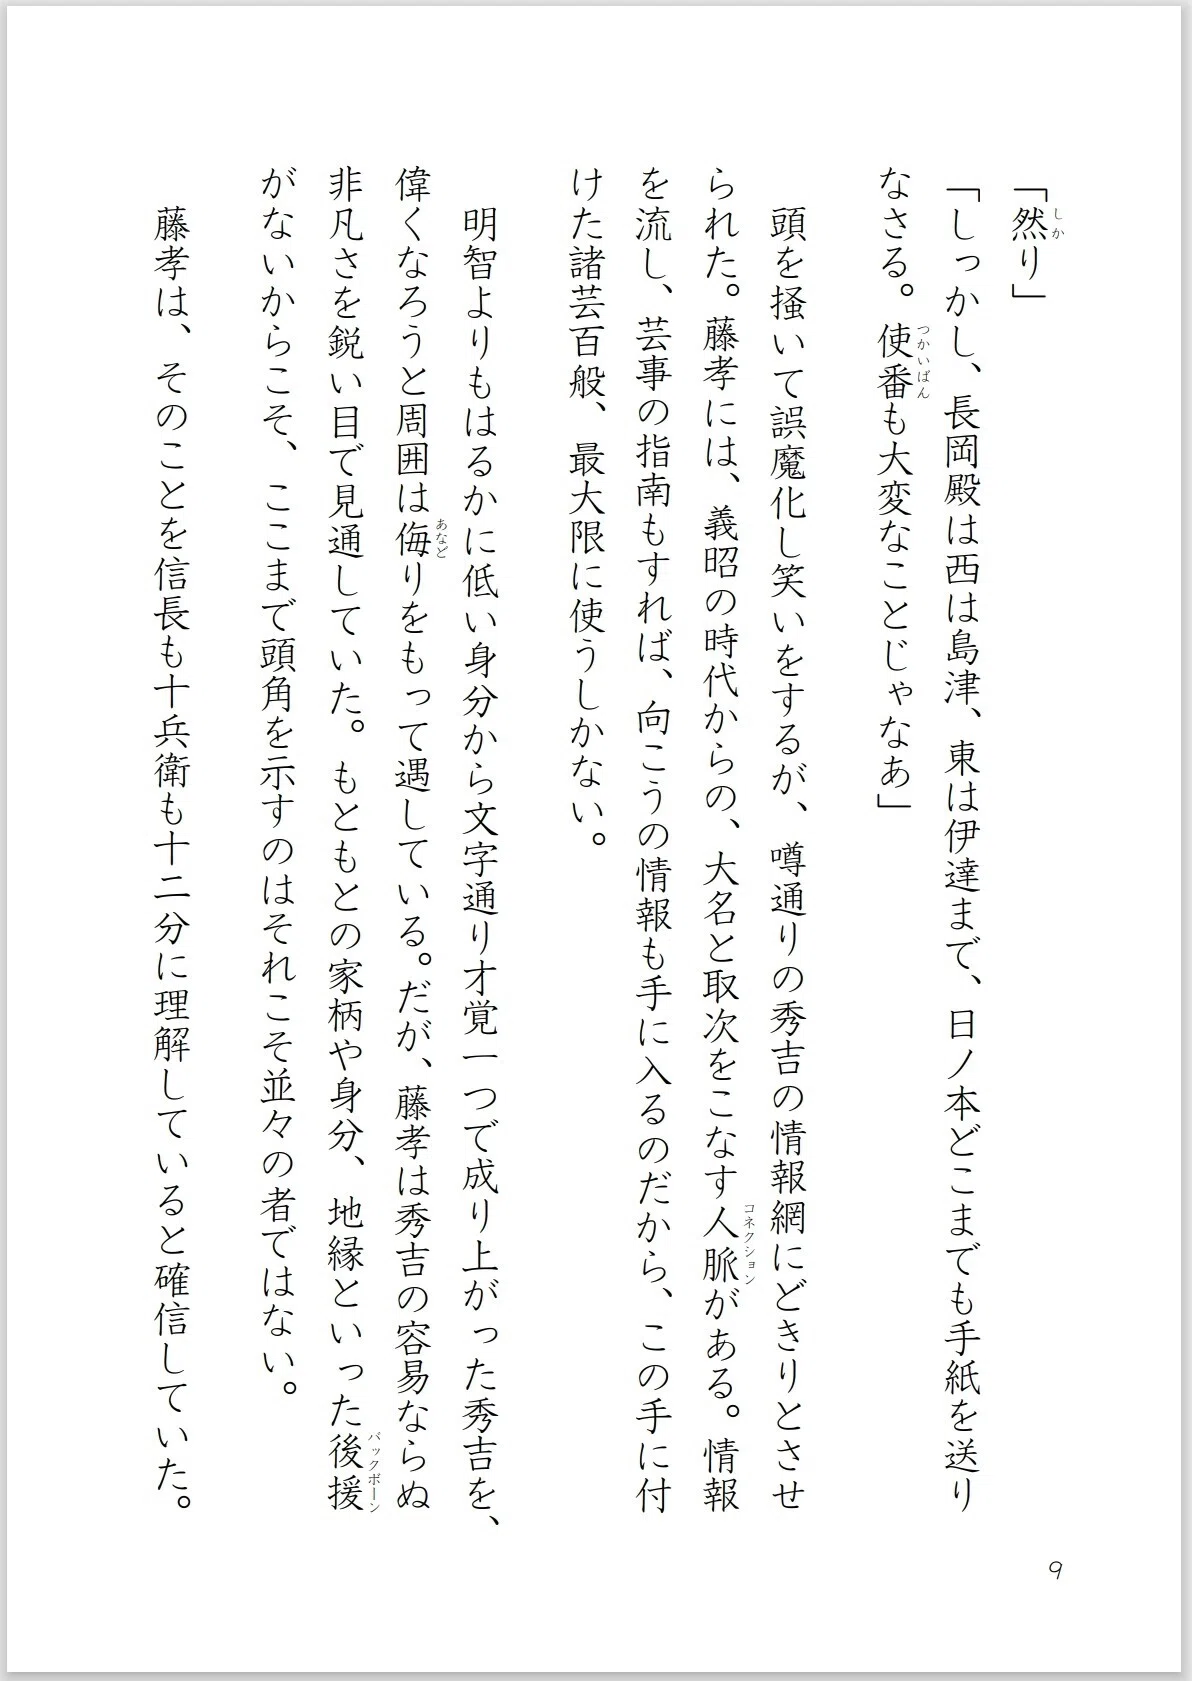 「然り」
しか
「しっかし、長岡殿は西は島津、東は伊達まで、日ノ本どこまでも手紙を送り
なさる。使番も大変なことじゃなあ」
つかいばん
頭を掻いて誤魔化し笑いをするが、噂通りの秀吉の情報網にどきりとさせ
られた。藤孝には、義昭の時代からの、大名と取次をこなす人脈がある。情報
コネクション
を流し、芸事の指南もすれば、向こうの情報も手に入るのだから、この手に付
けた諸芸百般、最大限に使うしかない。
明智よりもはるかに低い身分から文字通り才覚一つで成り上がった秀吉を、
偉くなろうと周囲は侮りをもって遇している。だが、藤孝は秀吉の容易ならぬ
あなど
非凡さを鋭い目で見通していた。もともとの家柄や身分、地縁といった後援
バックボーン
がないからこそ、ここまで頭角を示すのはそれこそ並々の者ではない。
藤孝は、そのことを信長も十兵衛も十二分に理解していると確信していた。
9